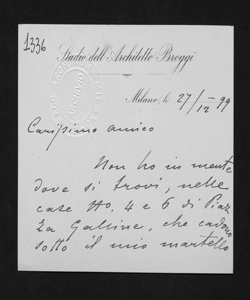 1336
Studio dell'Architetto Broggi
Milano, le 27/12 99
Carissimo amico
Non ho in mente
dove si trovi, nelle
case No. 4 e 6 di Piaz
za Galline, che cadono
sotto il mio martello